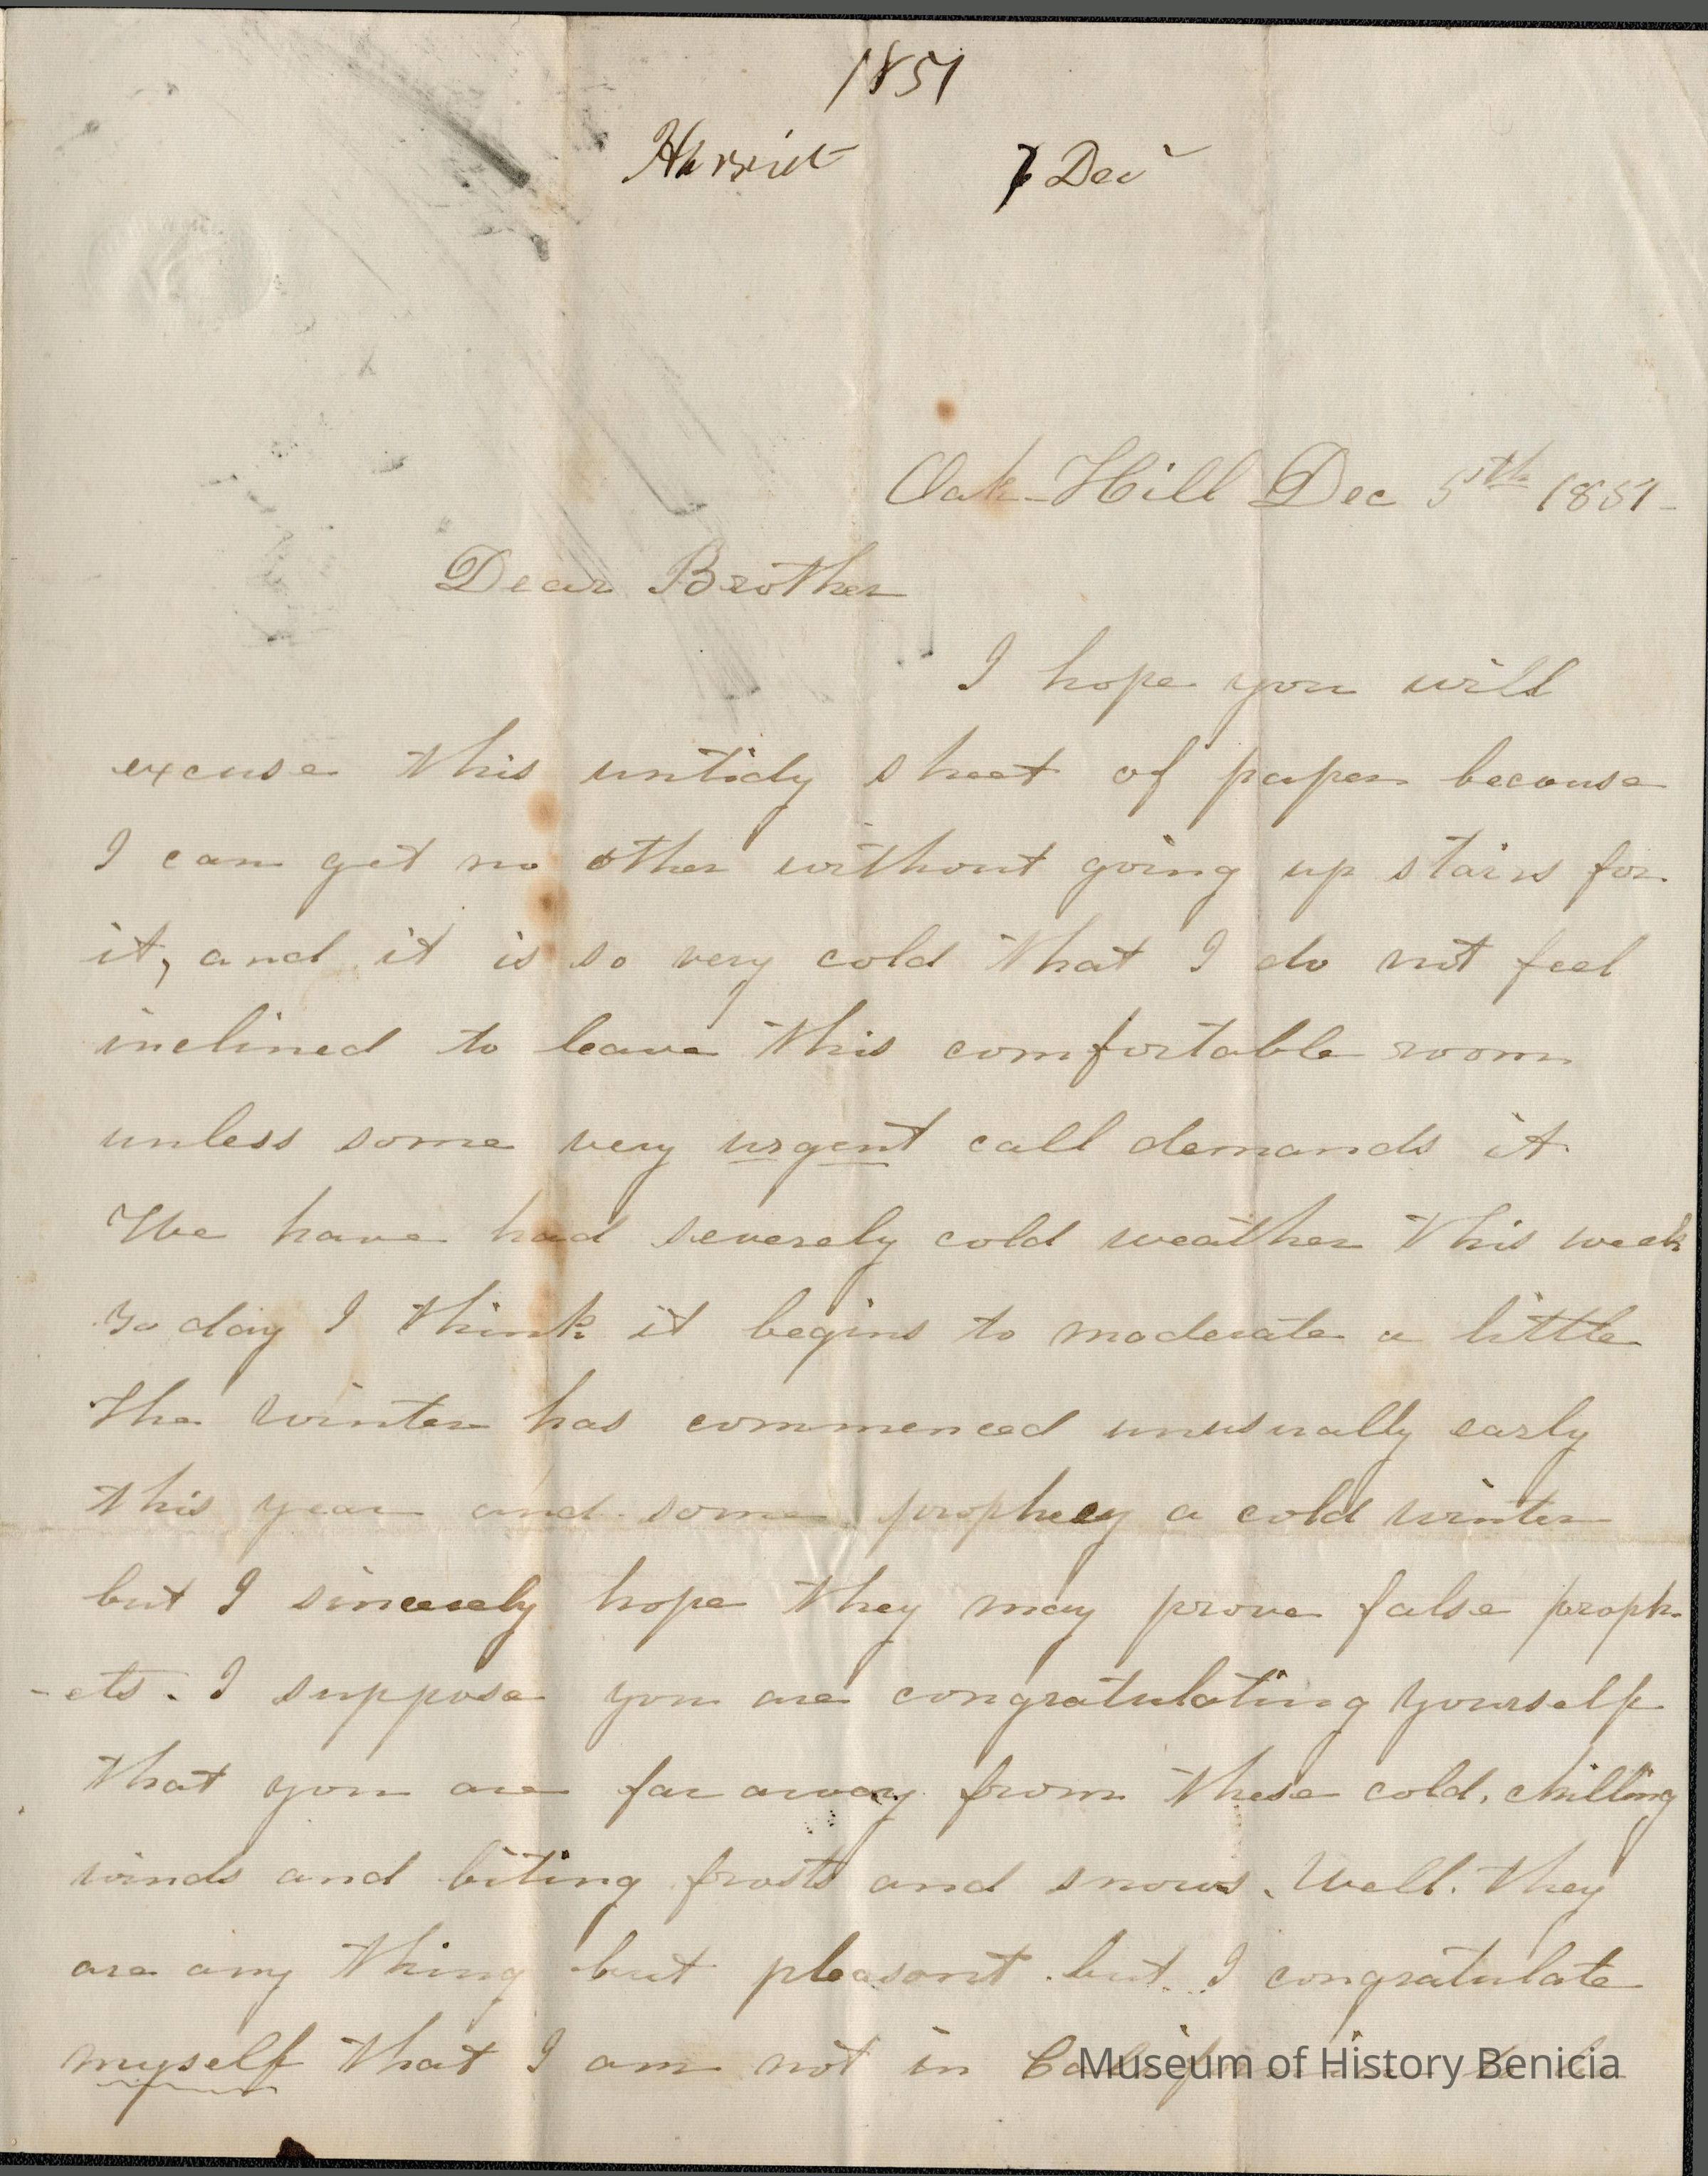 1851
Harriet 7 Dec
Oak-Hill Dec 5th 1851-
Dear Brother
I hope you will
excuse this untidy sheet of paper because
I can get no other without going up stairs for
it, and it is so very cold that I do not feel
inclined to leave this comfortable room
unless some very urgent call demands it
We have had severely cold weather this week
To day I think it begins to moderate a little
The winter has commenced unusually early
this year and some prophecy a cold winter
but I sincerely hope they may prove false proph-
-ets. I suppose you are congratulating yourself
that you are far away from these cold, chilling
winds and biting frosts and snows. Well. they
are any thing but pleasant but I congratulate
myself that I am not in
Museum of History Benicia